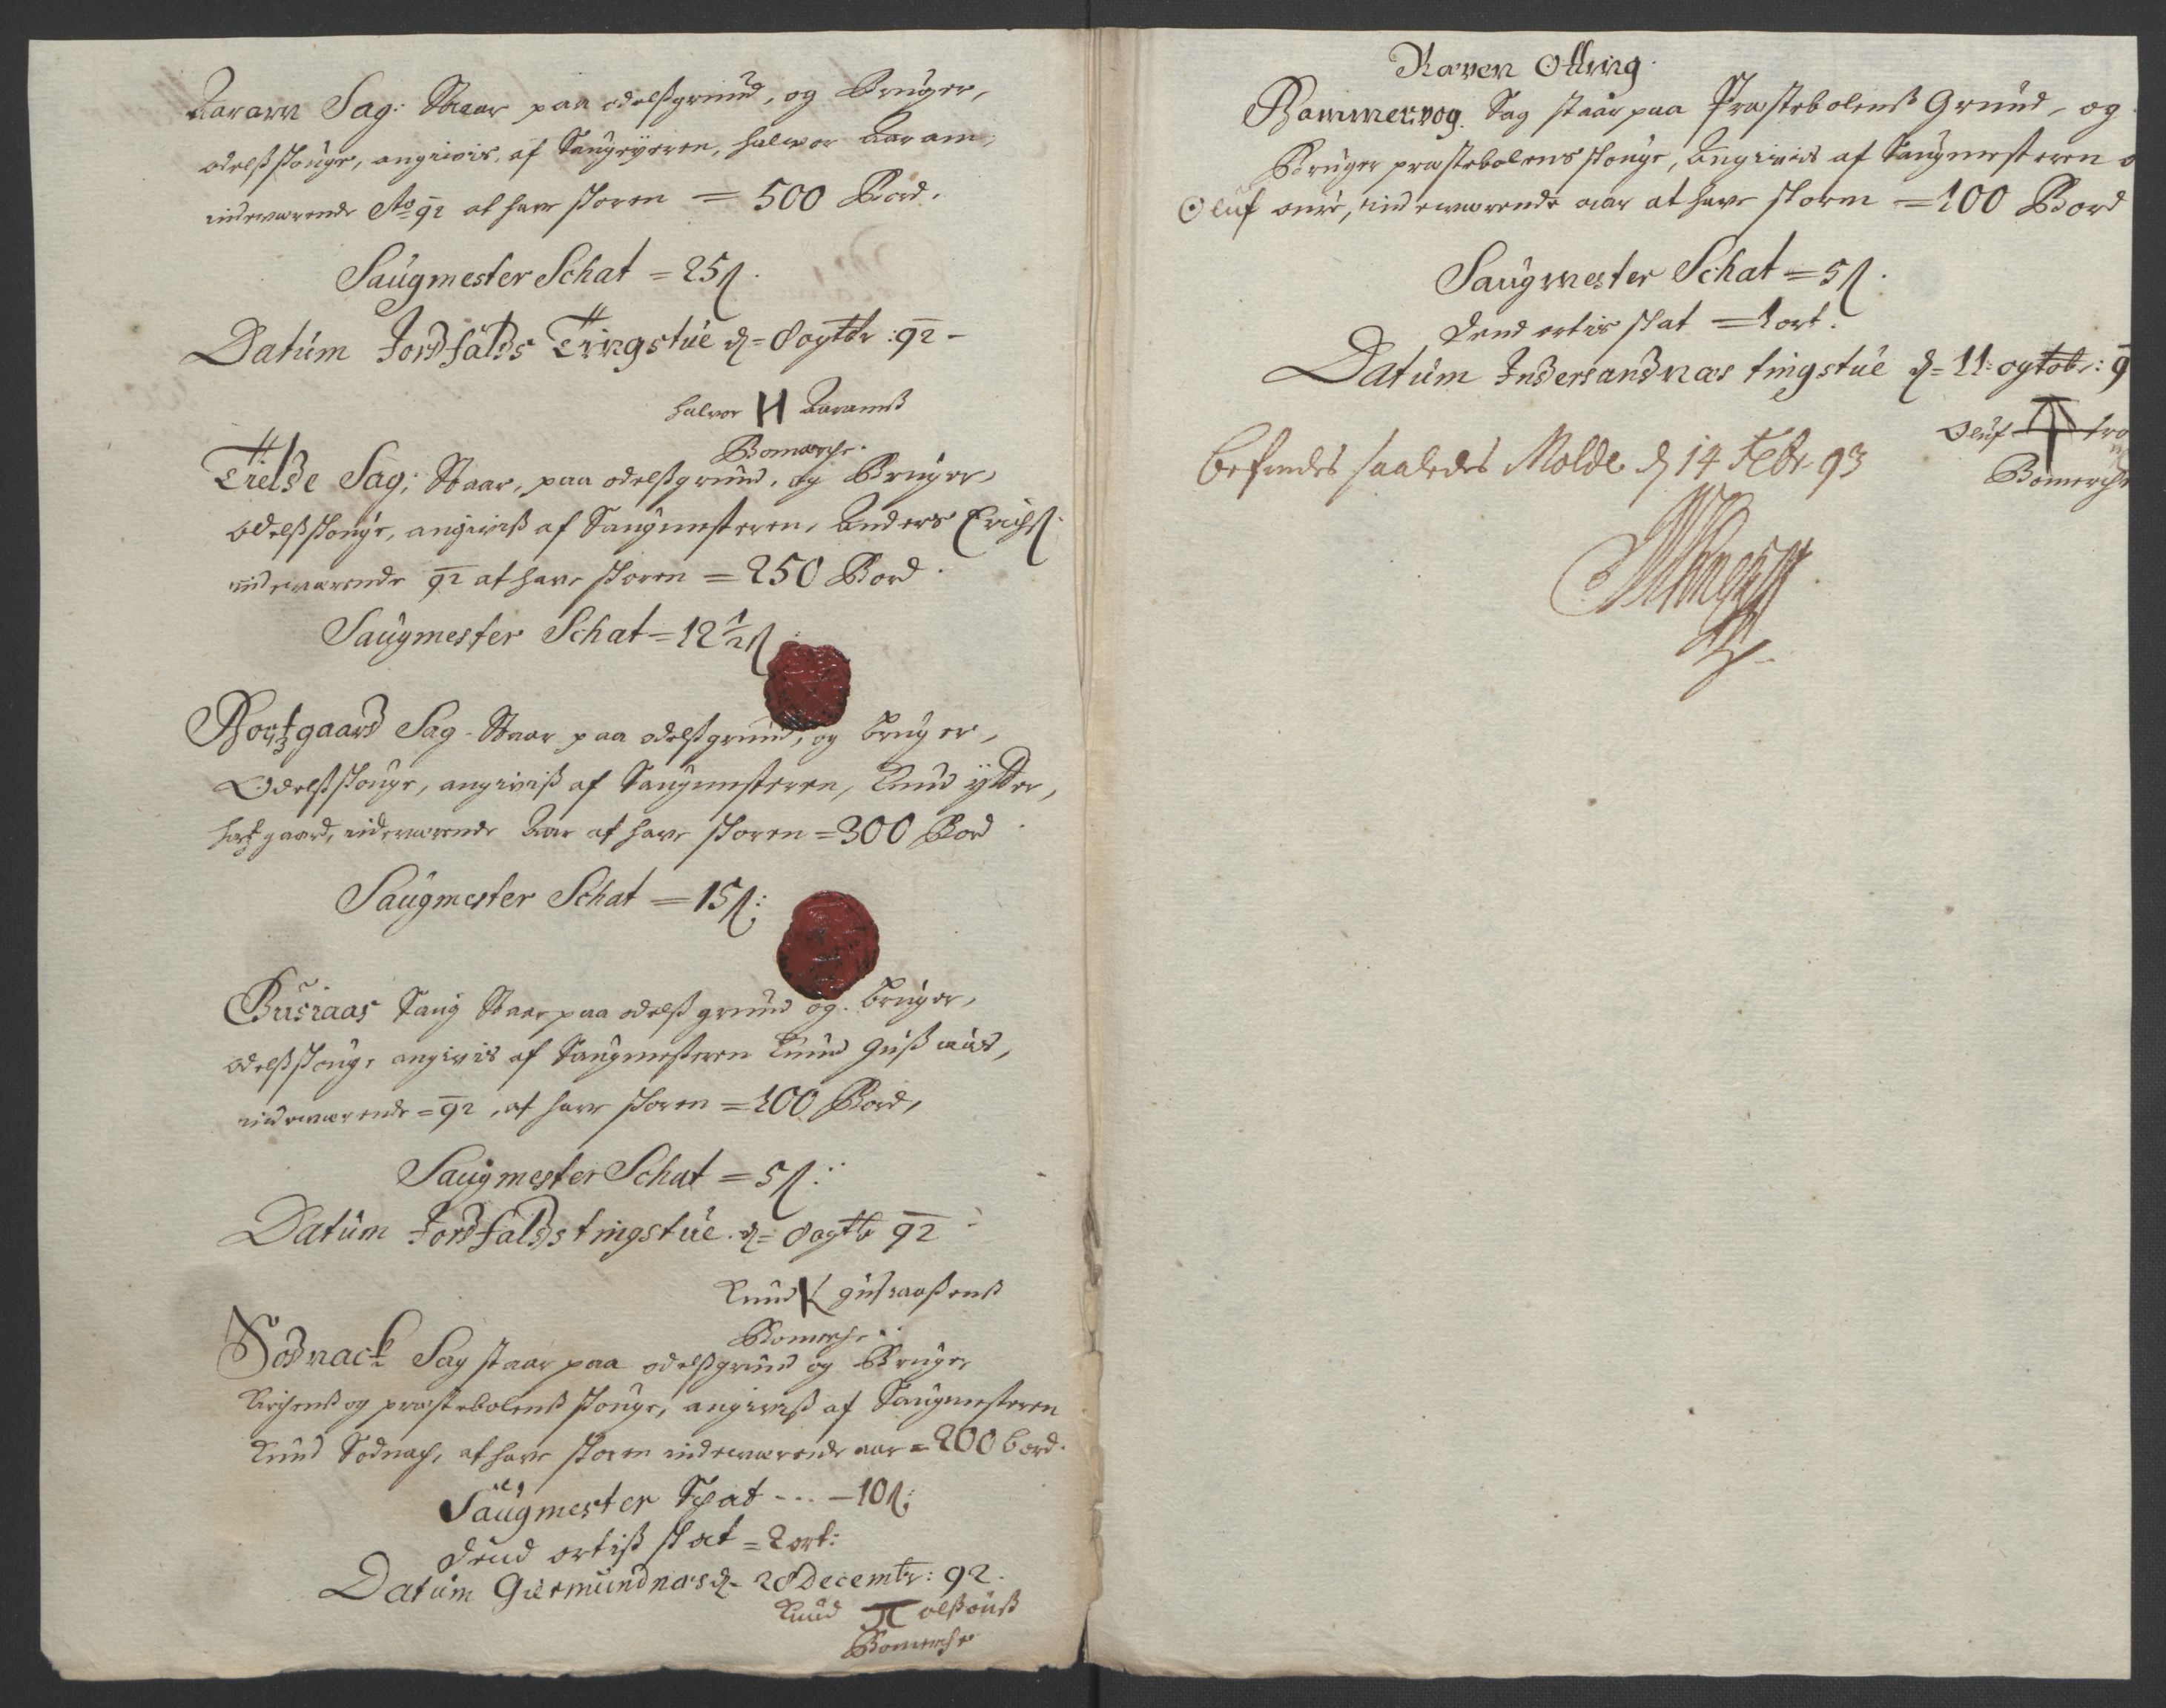 Aaram Sag: Staar paa odelsgrund, og Bruger,
odelsskouge, angivis, af Saugejeren, Halvor Aaram,
indeværende Ao 92 at have skoren = 500 Bord.
Saugmester Schat = 25 ß.
Datum Jordfalds Tingstue d= 8 ogtbr: 92 -
Halvor H Aarams
Bomerche.
Trelse Sag; Staar, paa odelsgrund, og Bruger
odelsskouge, angiviß af Saugmesteren, Anders Erichß:
indeværende 92 at have skoren = 250 Bord.
Saugmester Schat = 12 1/2 ß
Hortzgaard Sag. Staar paa odelsgrund, og bruger,
Odelsskouge, angiviß af Saugmesteren, Knud ytter,
Hortzgaard, indeværende Aar at have skoren = 300 Bord
Saugmester Schat = 15 ß:
Gusiaas Saug Staar paa odelß grund og. bruger,
odelßskouge angivis af Saugmesteren Knud Gußiaas,
indeværende = 92, at have skoren = 100 Bord,
Saugmester Schat = 5 ß:
Datum Jordfalds tingstue. d= 8 ogtb 92
Knud K gusiaaßens
Bomerche.
Sodnack Sag staar paa odelßgrund og Bruger
Kirchens og præstebolens skouge, angiviß af Saugmesteren
Knud Sodnach, at have skoren indeværende aar = 200 bord.
Saugmester Schat - .. - 10 ß:
Dend ortiß skat = 2 ort:
Datum Giermundnæs d= 28 Decembr: 92.
Knud olßøns
Bomerche
Raven Otting.
Hammervog. Sag staar paa Præstebolenß Grund, og
Bruger præstebolens skouge, Angivis af Saugmesteren
Oluf indeværende aar at have skoren = 100 Bord
Saugmester Schat = 5 ß.
Dend ortis skat = 1 ort.
Datum Indersandnæs tingstue d= 11: ogtobr: 9
Oluf
Bomerche
Befindes saaledes Molde d 14 Febr. 93